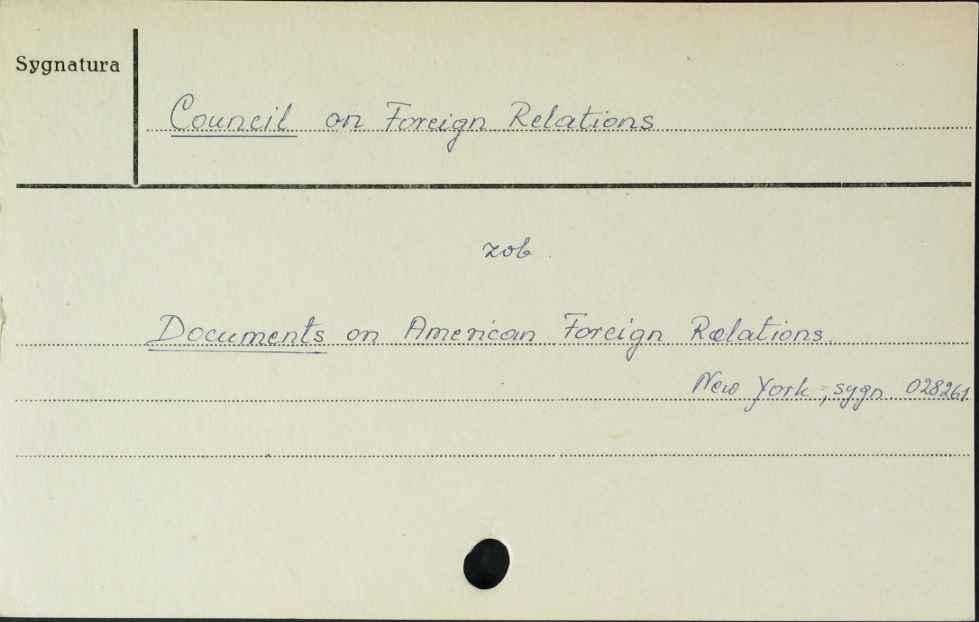 Sygnatura
Council on Foreign Relations
zob.
Documents on American Foreign Relations.
New York, sygn. 028261